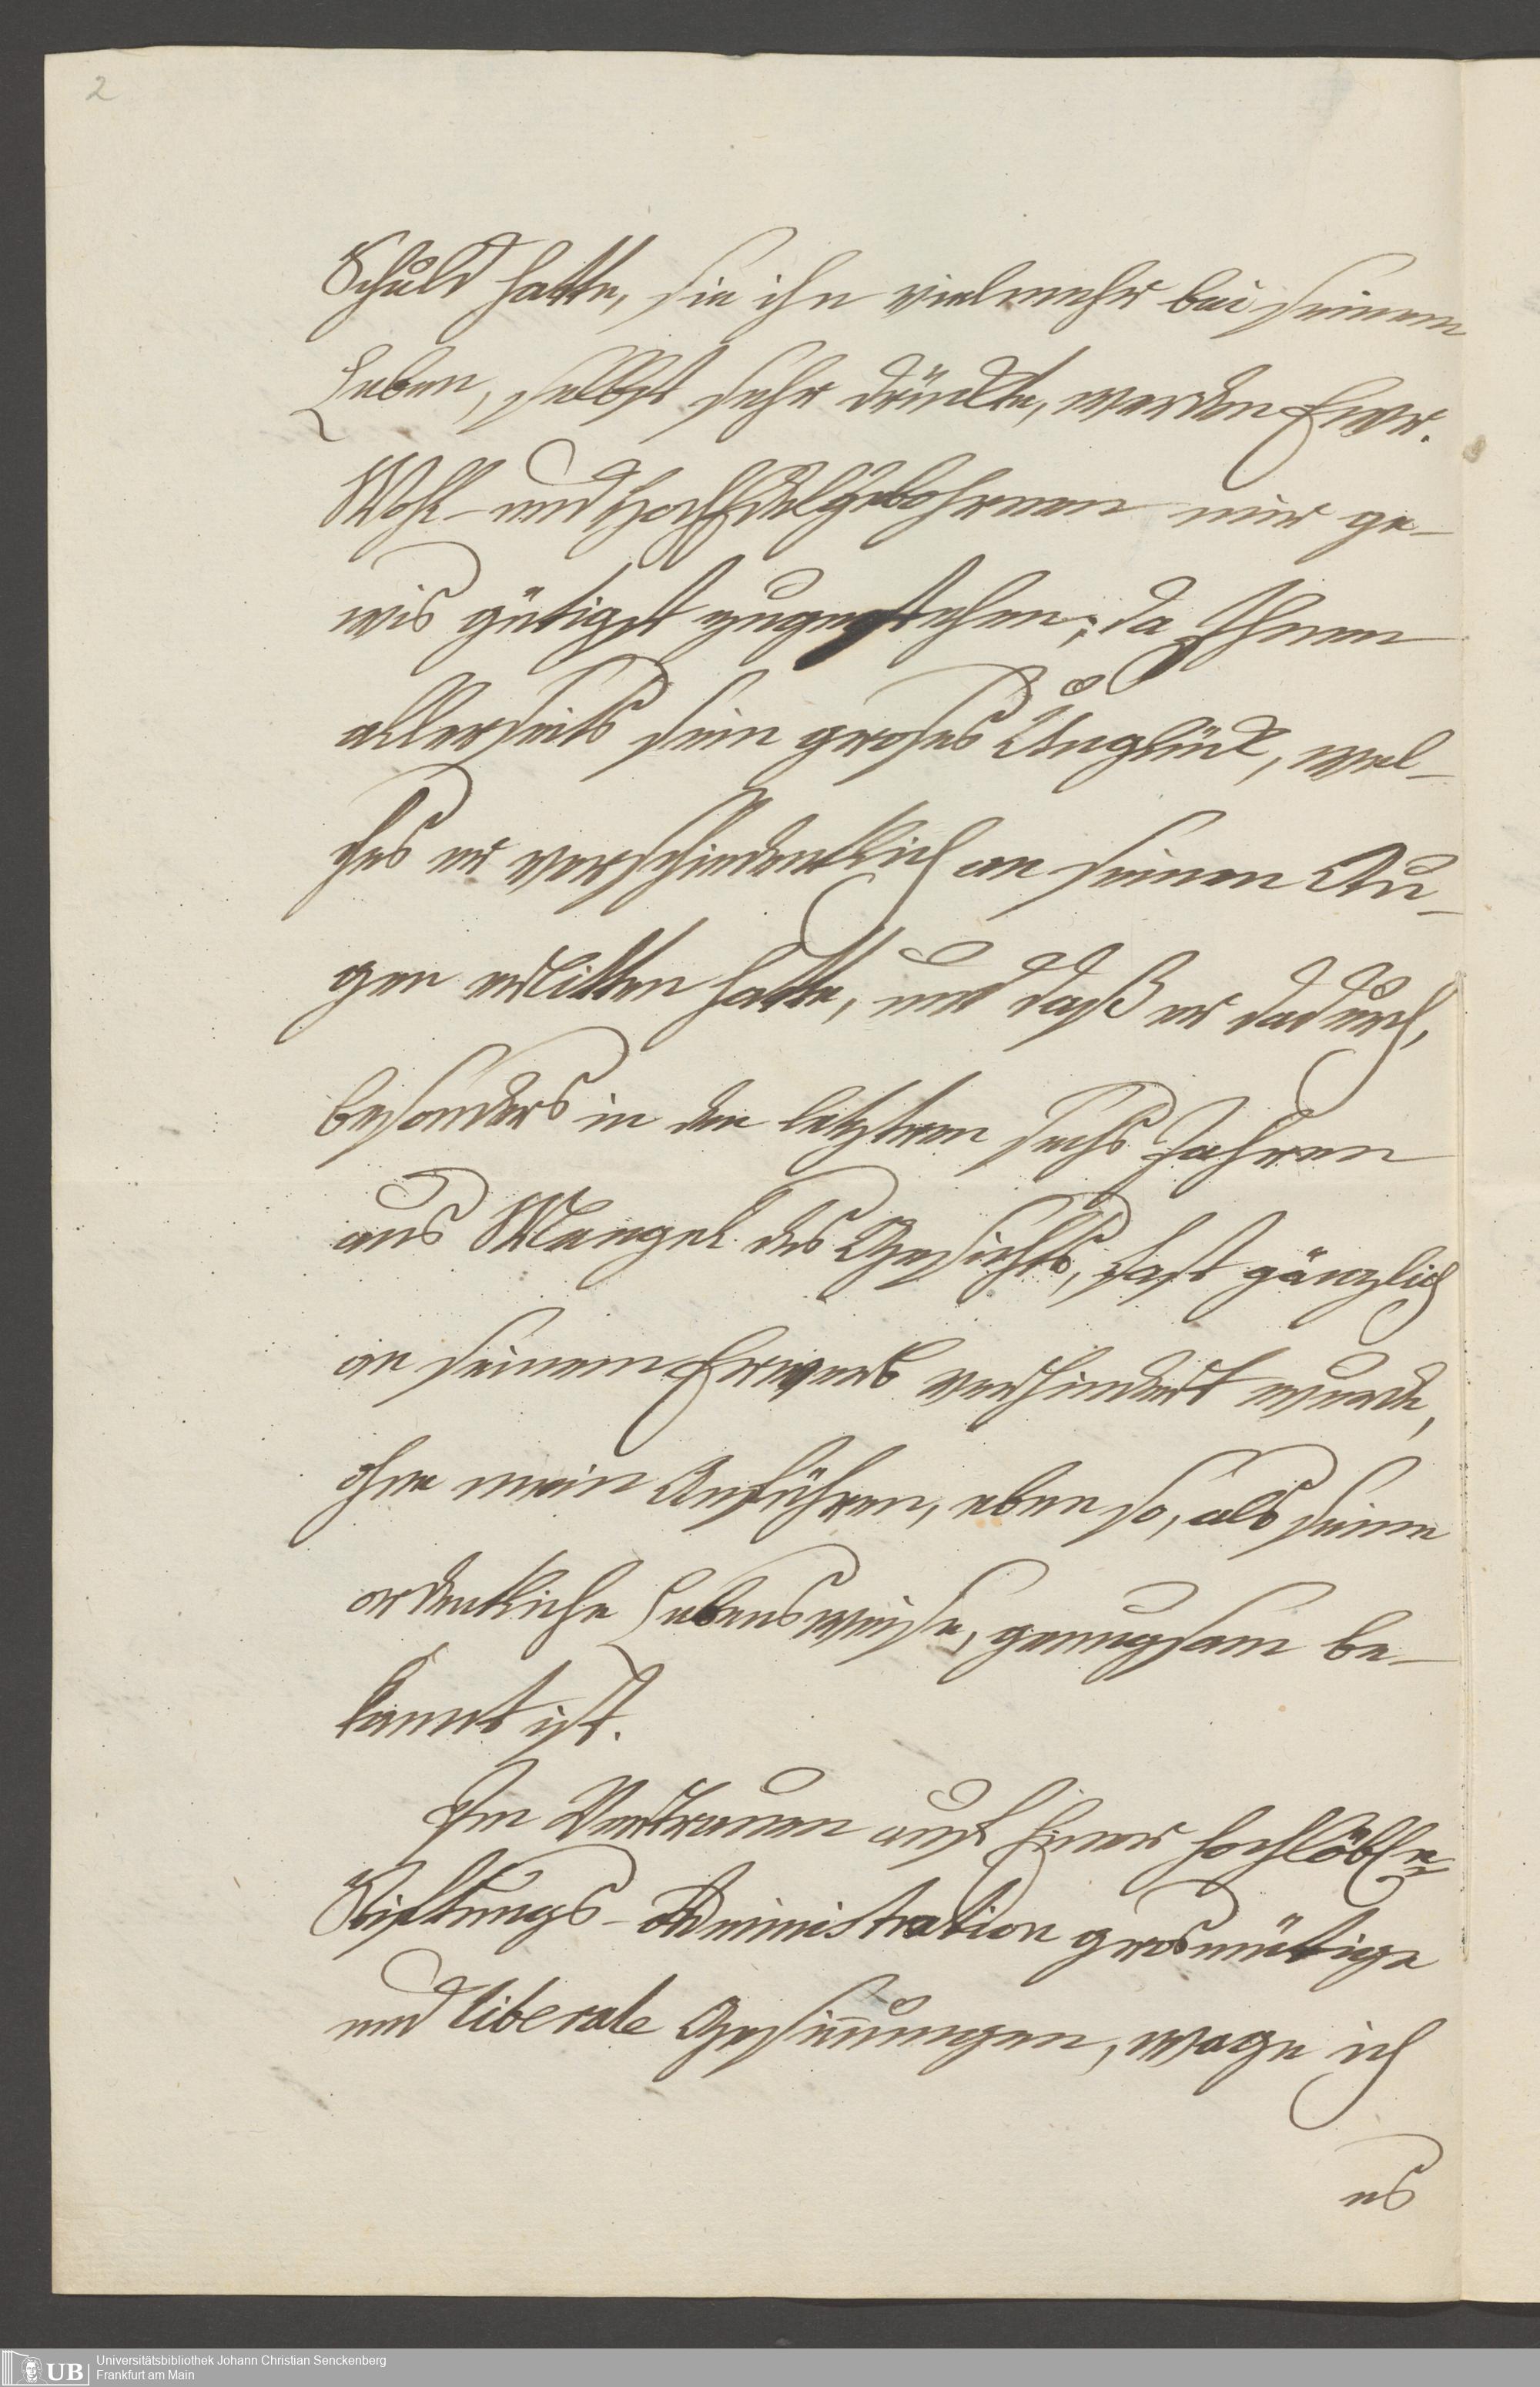 2
Schuld hatte, sie ihn vielmehr bei seinem
Leben, selbst sehr drückte, werden Ewr.
Wohl- und HochEdelGebohrnen mir ge-
wis gütigst zugestehen; da Ihnen
allerseits sein groses Unglück, wel-
ches er verschiedentlich an seinen Au-
gen erlitten hatte, und daß er dadurch,
besonders in den letztern sechs Jahren
aus Mangel des Gesichts, fast gänzlich
an seinem Erwerb verhindert wurde,
ohne mein Anführen, eben so, als seine
ordentliche Lebensweise, genugsam be-
kannt ist.
Im Vertrauen auf Einer hochlöbln
Stiftungs-Administration grosmütige
und liberale Gesinnungen, wage ich
es
UB
Universitätsbibliothek Johann Christian Senckenberg
Frankfurt am Main